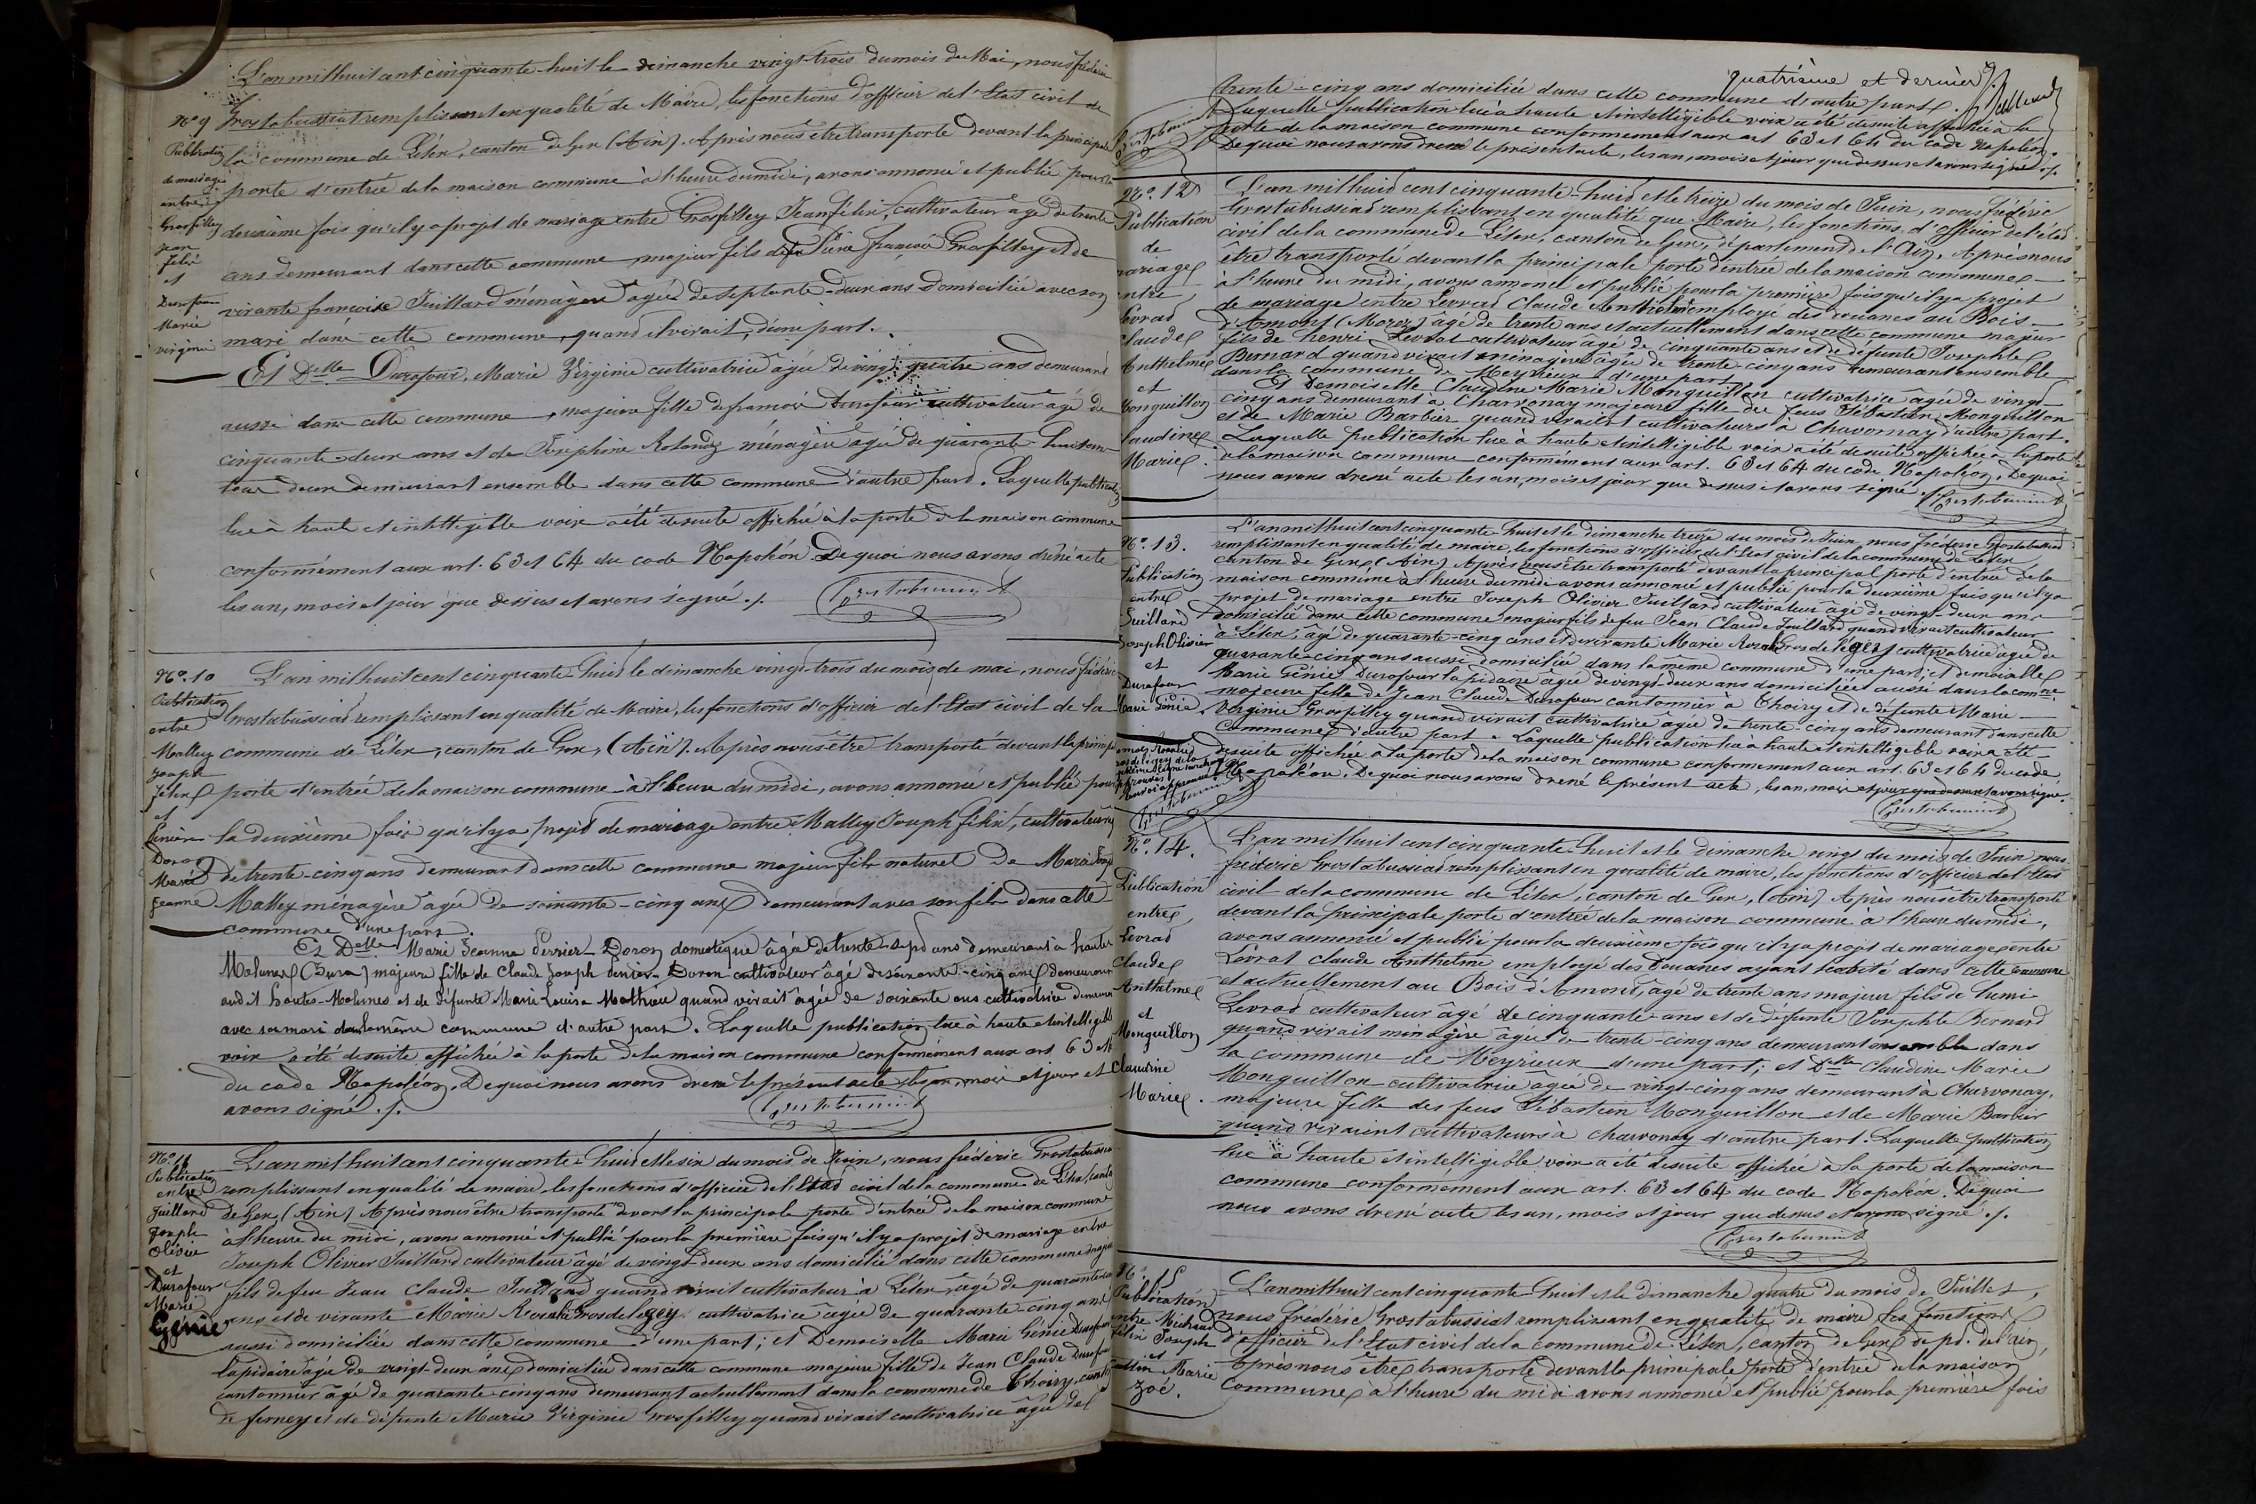 N° 9
Publication
de mariage
entre
Grosfilley
Jean
Félix
et
Durafour
Marie
Virginie
L'an mil huit cent cinquante-huit le dimanche vingt-trois du mois de Mai, nous frédéric
Grostabussiat remplissant en qualité de Maire, les fonctions d'officier de l'Etat civil de
la commune de Lélex, canton de Gex (Ain). Après nous être transporté devant la principale
porte d'entrée de la maison commune à l'heure du midi, avons annoncé et publié pour la
deuxième fois qu'il y a projet de mariage entre Grosfilley Jean félix, cultivateur âgé de trente
ans demeurant dans cette commune, majeur fils de feu Pierre françois Grosfilley et de
vivante françoise Juillard ménagère âgée de septante-deux ans domiciliée avec son
mari dans cette commune, quand il vivait, d'une part.
Et Delle Durafour, Marie Virginie cultivatrice âgée de vingt quatre ans demeurant
aussi dans cette commune, majeure fille de françois Durafour cultivateur âgé de
cinquante-deux ans et de Joséphine Rolandez ménagère âgée de quarante-huit ans
tous deux demeurant ensemble dans cette commune d'autre part. Laquelle publication
lue à haute et intelligible voix a été de suite affichée à la porte de la maison commune
conformément aux art. 63 et 64 du code Napoléon. De quoi nous avons dressé acte
les an, mois et jour que dessus et avons signé ./. Grostabussiat
N° 10
Publication
entre
Malley
Joseph
félix
et
Perrier
Doron
Marie
Jeanne
L'an mil huit cent cinquante-huit le dimanche vingt-trois du mois de mai, nous frédéric
Grostabussiat remplissant en qualité de Maire, les fonctions d'officier de l'Etat civil de la
commune de Lélex, canton de Gex, (Ain). Après nous être transporté devant la principale
porte d'entrée de la maison commune à l'heure du midi, avons annoncé et publié pour
la deuxième fois qu'il y a projet de mariage entre Malley Joseph félix, cultivateur âgé
de trente-cinq ans demeurant dans cette commune majeur fils naturel de Marie
Malley ménagère âgée de soixante-cinq ans demeurant avec son fils dans cette
commune d'une part.
Et Delle Marie Jeanne Perrier-Doron domestique âgée de trente-sept ans demeurant à hautes
Molunes (Jura) majeure fille de Claude Joseph Perrier-Doron cultivateur âgé de soixante-cinq ans demeurant
audit hautes-Molunes et de défunte Marie Louise Mathieu quand vivait âgée de soixante ans cultivatrice demeurant
avec son mari dans la même commune d'autre part. Laquelle publication lue à haute et intelligible
voix a été de suite affichée à la porte de la maison commune conformément aux art 63 et
du code Napoléon. De quoi nous avons dressé le présent acte, les an, mois et jour et
avons signé ./. Grostabussiat
N° 11
Publication
entre
Juillard
Joseph
Olivier
et
Durafour
Marie
Génie
L'an mil huit cent cinquante-huit et le six du mois de Juin, nous frédéric Grostabussiat
remplissant en qualité de maire, les fonctions d'officier de l'Etat civil de la commune de Lélex, canton
de Gex, (Ain) Après nous être transporté devant la principale porte d'entrée de la maison commune
à l'heure du midi, avons annoncé et publié pour la première fois qu'il y a projet de mariage entre
Joseph Olivier Juillard cultivateur âgé de vingt-deux ans domicilié dans cette commune majeur
fils de feu Jean Claude Juillard quand vivait cultivateur à Lélex, âgé de quarante-cinq
ans et de vivante Marie Rosalie Gros de légex cultivatrice âgée de quarante-cinq ans
aussi domiciliée dans cette commune d'une part; et Demoiselle Marie Génie Durafour
lapidaire âgée de vingt-deux ans domiciliée dans cette commune majeure fille de Jean Claude Durafour
cantonnier âgé de quarante-cinq ans demeurant actuellement dans la commune de Thoiry, canton
de ferney et de défunte Marie Virginie Grosfilley quand vivait cultivatrice âgée de
quatrième et dernier
trente-cinq ans domiciliée dans cette commune d'autre part.
Laquelle publication lue à haute et intelligible voix a été de suite affichée à la
porte de la maison commune conformément aux art 63 et 64 du code Napoléon.
De quoi nous avons dressé le présent acte, les an, mois et jour que dessus et avons signé ./.
Grostabussiat
N° 12
Publication
de
mariage
entre
Levrad
Claude
Anthelme
et
Monguillon
Claudine
Marie
L'an mil huit cent cinquante-huit et le treize du mois de Juin, nous frédéric
Grostabussiat remplissant en qualité que Maire, les fonctions d'officier de l'état
civil de la commune de Lélex, canton de Gex, département de l'Ain. Après nous
être transporté devant la principale porte d'entrée de la maison commune
à l'heure du midi, avons annoncé et publié pour la première fois qu'il y a projet
de mariage entre Levrad Claude Anthelme employé des douanes au Bois
d'Amont (Morez) âgé de trente ans et actuellement dans cette commune majeur
fils de henri Levrat cultivateur âgé de cinquante ans et de défunte Josephte
Bernard quand vivait ménagère âgée de trente-cinq ans demeurant ensemble
dans la commune de Meyrieux d'une part
Et Demoiselle Claudine Marie Monguillon cultivatrice âgée de vingt
cinq ans demeurant à Charvonay majeure fille des feus Sébastien Monguillon
et de Marie Barbier quand vivaient cultivateurs à Chavornay d'autre part.
Laquelle publication lue à haute et intelligible voix a été de suite affichée à la porte
de la maison commune conformément aux art. 63 et 64 du code Napoléon. De quoi
nous avons dressé acte les an, mois et jour que dessus et avons signé.
Grostabussiat
N° 13.
Publication
entre
Juillard
Joseph Olivier
et
Durafour
Marie Génie
L'an mil huit cent cinquante-huit et le dimanche treize du mois de Juin, nous frédéric Grostabussiat
remplissant en qualité de maire, les fonctions d'officier de l'Etat civil de la commune de Lélex
canton de Gex (Ain) Après nous être transporté devant la principal porte d'entrée de la
maison commune à l'heure du midi avons annoncé et publié pour la deuxième fois qu'il y a
projet de mariage entre Joseph Olivier Juillard cultivateur âgé de vingt-deux ans
domicilié dans cette commune majeur fils de feu Jean Claude Juillard quand vivait cultivateur
à Lélex, âgé de quarante-cinq ans et de vivante Marie Rosalie Gros de légex cultivatrice âgée de
quarante-cinq ans aussi domiciliée dans la même commune d'une part; et demoiselle
Marie Génie Durafour lapidaire âgée de vingt-deux ans domiciliée aussi dans la comne
majeure fille de Jean Claude Durafour cantonnier à Thoiry et de défunte Marie
Virginie Grosfilley quand vivait cultivatrice âgée de trente-cinq ans demeurant dans cette
commune d'autre part. Laquelle publication lue à haute et intelligible voix a été
de suite affichée à la porte de la maison commune conformément aux art. 63 et 64 du code
Napoléon. De quoi nous avons dressé le présent acte, les an, mois et jour que dessus et avons signé.
Grostabussiat
N° 14.
Publication
entre
Levrad
Claude
Anthelme
et
Monguillon
Claudine
Marie
L'an mil huit cent cinquante-huit et le dimanche vingt du mois de Juin nous
frédéric Grostabussiat remplissant en qualité de maire, les fonctions d'officier de l'Etat
civil de la commune de Lélex, canton de Gex, (Ain) Après nous être transporté
devant la principale porte d'entrée de la maison commune à l'heure du midi,
avons annoncé et publié pour la deuxième fois qu'il y a projet de mariage entre
Lévrat Claude Anthelme employé des Douanes ayant habité dans cette commune
et actuellement au Bois d'Amont, âgé de trente ans majeur fils de henri
Levrad cultivateur âgé de cinquante ans et de défunte Josephte Bernard
quand vivait ménagère âgée de trente-cinq ans demeurant ensemble dans
la commune de Meyrieux d'une part; et Delle Claudine Marie
Monguillon cultivatrice âgée de vingt-cinq ans demeurant à Charvonay,
majeure fille des feus Sébastien Monguillon et de Marie Barbier
quand vivaient cultivateurs à Charvonay d'autre part. Laquelle publication
lue à haute et intelligible voix a été de suite affichée à la porte de la maison
commune conformément aux art. 63 et 64 du code Napoléon. De quoi
nous avons dressé acte les an, mois et jour que dessus et avons signé ./.
Grostabussiat
N° 15
Publication
entre Michaud
félix Joseph
et
Marie
Zoé.
L'an mil huit cent cinquante-huit et le dimanche quatre du mois de Juillet,
nous Frédéric Grostabussiat remplissant en qualité de maire les fonctions
d'officier de l'Etat civil de la commune de Lélex, canton de Gex dépt. de l'ain,
Après nous être transporté devant la principale porte d'entrée de la maison
Commune à l'heure du midi avons annoncé et publié pour la première fois